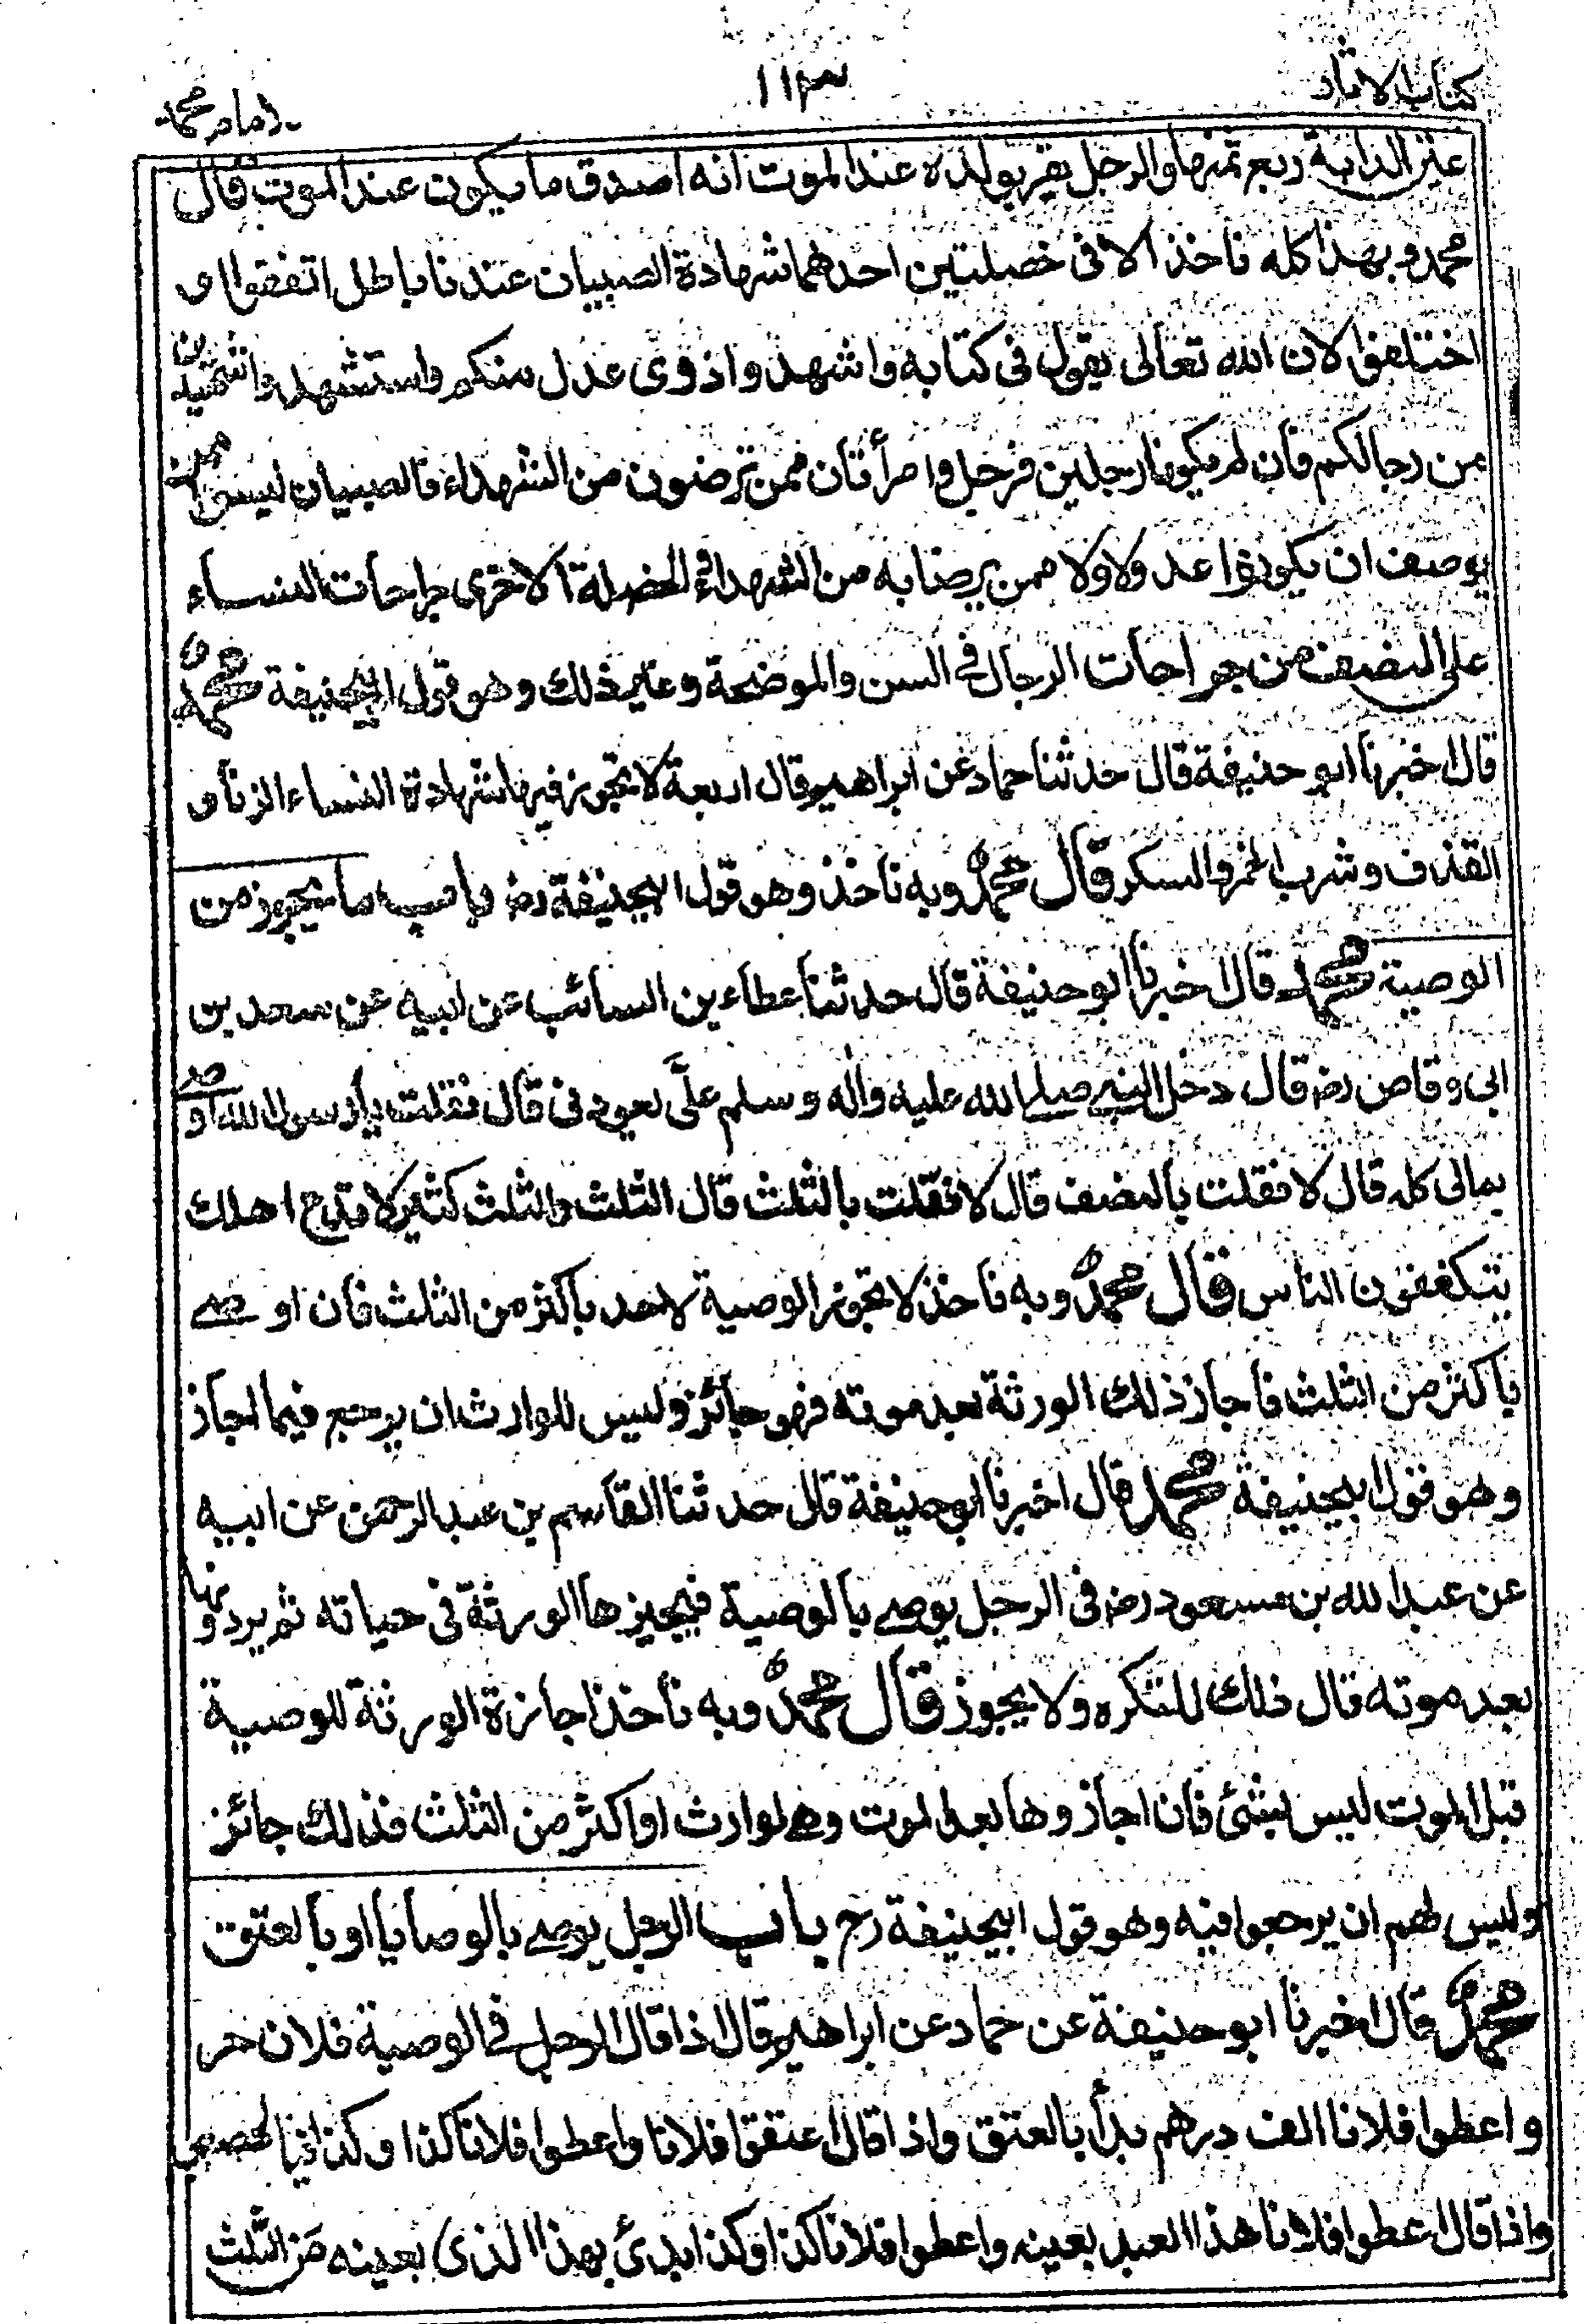 كتاب الاثار
١١٣
امام محمد
عين الدابة ربع ثمنها والرجل يقر بولده عند الموت انه اصدق ما يكون عند الموت قال
محمد وبهذا كله ناخذ الا فى خصلتين احدهما شهادة الصبيان عندنا باطل اتفقوا او
اختلفوا لان الله تعالى يقول فى كتابه واشهدوا ذوى عدل منكم واستشهدوا شهيدين
من رجالكم فان لم يكونا رجلين فرجل وامرأتان ممن ترضون من الشهداء فالصبيان ليسوا ممن
يوصف ان يكونوا عدولا ولا ممن يرضا به من الشهداء والخصلة الاخرى جراحات النساء
على النصف من جراحات الرجال فى السن والموضحة وغير ذلك وهو قول ابيحنيفة محمد
قال اخبرنا ابو حنيفة قال حدثنا حماد عن ابراهيم قال اربعة لا تجوز فيها شهادة النساء الزنا و
القذف وشرب الخمر والسكر قال محمد وبه ناخذ وهو قول ابيحنيفة رض باب ما يجوز من
الوصية محمد قال اخبرنا ابو حنيفة قال حدثنا عطاء بن السائب عن ابيه عن سعد بن
ابى وقاص رض قال دخل النبى صلى الله عليه واله وسلم علَّى يعودنى قال فقلت يا رسول الله اوصى
بمالى كله قال لا فقلت بالنصف قال لا فقلت بالثلث قال الثلث والثلث كثير لا تدع اهلك
يتكففون الناس قال محمد وبه ناخذ لا تجوز الوصية لاحد باكثر من الثلث فان اوصى
باكثر من الثلث فاجاز ذلك الورثة بعد موته فهو جائز وليس للوارث ان يرجع فيما اجاز
وهو قول ابيحنيفة محمد قال اخبرنا ابو حنيفة قال حدثنا القاسم بن عبد الرحمن عن ابيه
عن عبد الله بن مسعود رض فى الرجل يوصى بالوصية فيجيزها الورثة فى حياته ثم يردونها
بعد موته قال ذلك للتكره ولا يجوز قال محمد وبه نأخذ اجازة الورثة للوصية
قبل الموت ليس بشئ فان اجازوها بعد الموت وهى لوارث او اكثر من الثلث فذلك جائز
وليس لهم ان يرجعوا فيه وهو قول ابيحنيفة رح باب الرجل يوصى بالوصايا او بالعتق
محمد قال اخبرنا ابو حنيفة عن حماد عن ابراهيم قال اذا قال الرجل فى الوصية فلان حر
واعطوا فلانا الف درهم بدأ بالعتق واذا قال اعتقوا فلانا واعطوا فلانا كذا وكذا فبالحصص
واذا قال اعطوا فلانا هذا العبد بعينه واعطوا فلانا كذا وكذا بدئ بهذا الذى بعينه من الثلث